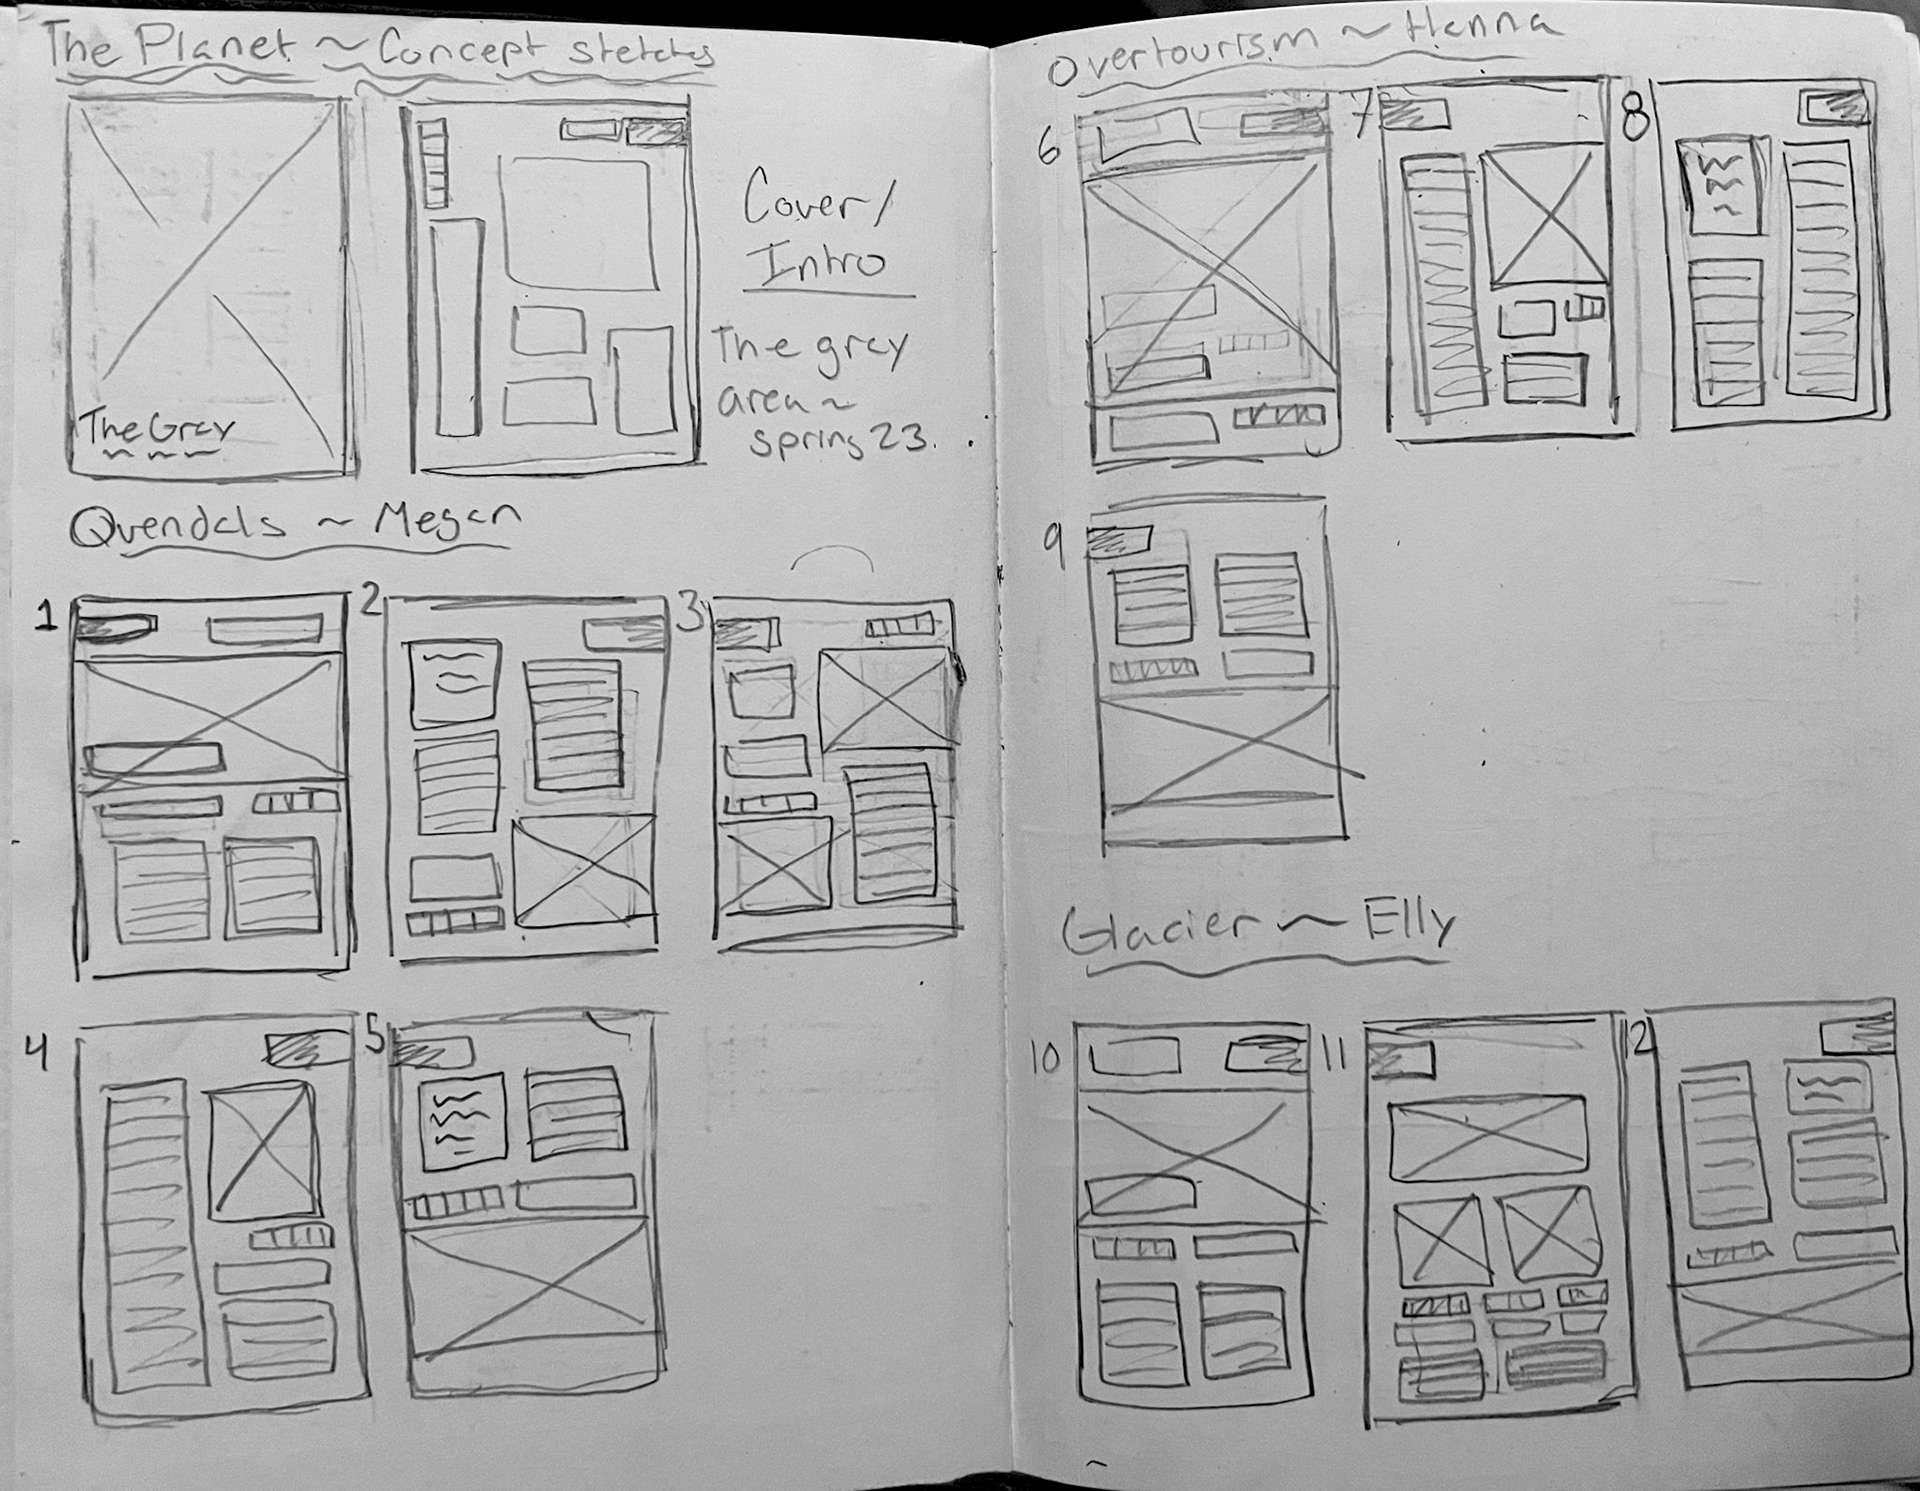 The Planet ~ Concept sketches
The Grey
Cover/
Intro
The grey
area ~
spring 23.
Quendals ~ Megan
1
2
3
4
5
Overtourism ~ Henna
6
7
8
9
Glacier ~ Elly
10
11
12